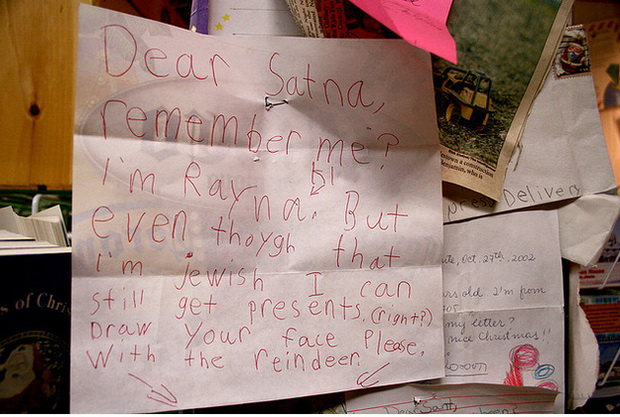 Dear Satna,
remember me?
I'm Rayna. But
even thoygh that
I'm Jewish I can
still get presents. (right?)
Draw your face Please.
With the reindeer.
s of Chris
press Delivery
Oct. 27th, 2002
rs old I'm from
my letter?
nice Christmas!!
Dear Santa,